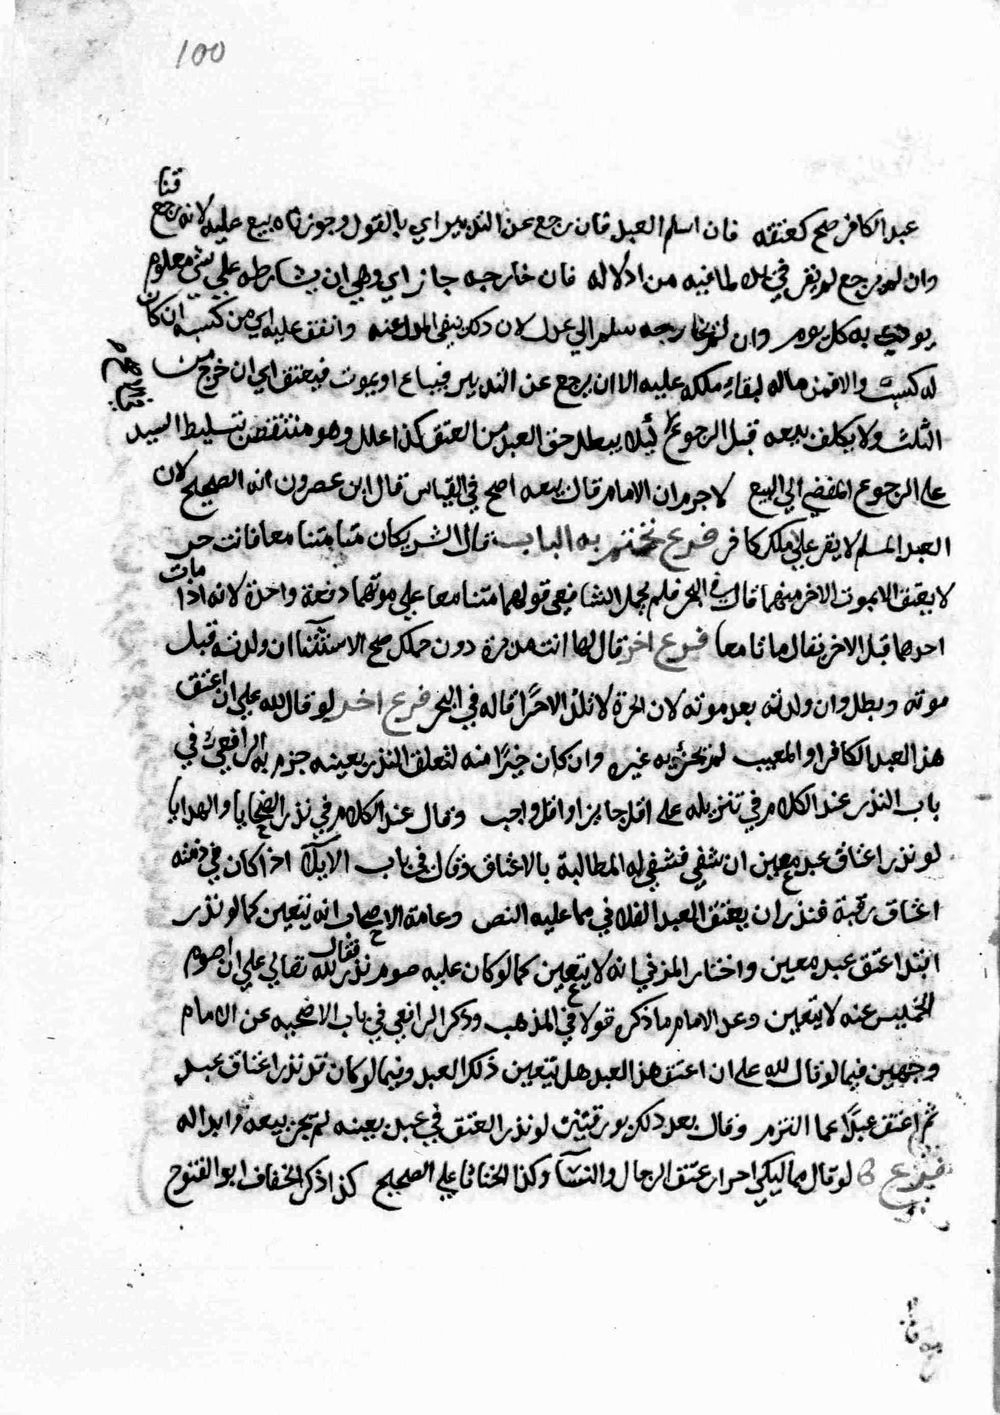 100
قنا
عبد الكافر صح كعتقه فان اسلم العبد فان رجع عن التدبير اي بالقول وجوزناه بيع عليه لانه رجع
وان لم يرجع لم يقر في يده لما فيه من اذلاله فان خارجه جاز اي وهي ان يشارطه علي شي معلوم
يودي به كل يوم وان لم يخارجه سلم الي عدل لان ذلك ينفي الذل عنه وانفق عليه اي من كسبه ان كان
له كسب والا فمن ماله لبقاء ملكه عليه الا ان يرجع عن التدبير فيباع او يموت فيعتق اي ان خرج من
الثلث ولا يكلف بيعه قبل الرجوع ليلا يبطل حق العبد من العتق كذا علل وهو منتقض بتسليط السيد
علي الرجوع المفضي الي البيع لا جرم ان الامام قال بيعه اصح في القياس قال ابن عصرون انه الصحيح لان
العبد المسلم لا يقر علي ملك كافر فرع نختتم به الباب قال الشريكان متي متنا معا فانت حر
لا يعتق الا بموت الاخر منهما قال في البحر فلم يجعل الشافعي قولهما متنا معا علي موتهما دفعة واحدة لانه اذا مات
احدهما قبل الاخر يقال ماتا معا فرع اخر قال لها انت مدبرة دون حملك صح الاستثنا ان ولدته قبل
موته وبطل وان ولدته بعد موته لان الحرة لا تلد الا حرا قاله في البحر فرع اخر لو قال لله علي ان اعتق
هذا العبد الكافر او المعيب لم يجزئه غيره وان كان خيرا منه لتعلق النذر بعينه جزم به الرافعي في
باب النذر عند الكلام في تنزيله علي اقل جايز او اقل واجب وقال عند الكلام في نذر الضحايا والهدايا
لو نذر اعتاق عبد معين ان شفي فشفي له المطالبة بالاعتاق وقال في باب الايلا اذا كان في ذمته
اعتاق رقبة فنذر ان يعتق العبد الفلاني عما عليه النص وعامة الاصحاب انه يتعين كما لو نذر
ابتدا عتق عبد معين واختار المزني انه لا يتعين كما لو كان عليه صوم نذر فقال لله تعالي علي ان اصوم
الخميس عنه لا يتعين وعد الامام ما ذكره قولا في المذهب وذكر الرافعي في باب الاضحيه عن الامام
وجهين فيما لو قال لله علي ان اعتق هذا العبد هل يتعين ذلك العبد وفيما لو كان قد نذر اعتاق عبد
ثم اعتق عبدا عما التزم وقال بعد ذلك لو نذر العتق في عبد بعينه لم يجز بيعه وابداله
فرع لو قال مماليكي احرار عتق الرجال والنسا وكذا الخناثا علي الصحيح كذا ذكره الخفاف ابو الفتوح